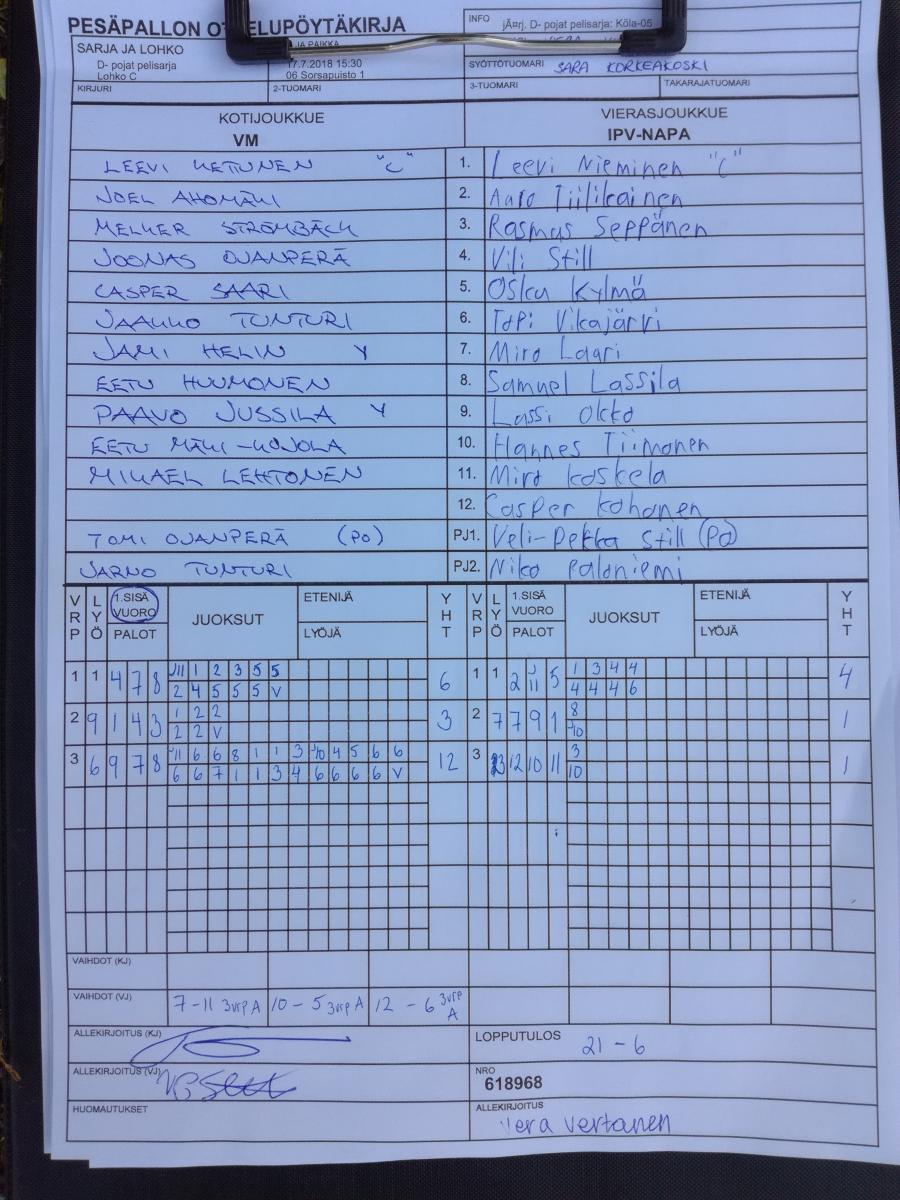 PESÄPALLON OT ELUPÖYTÄKIRJA
INFO jÃ¤rj. D- pojat pelisarja: Köla-05
SARJA JA LOHKO
JA PAIKKA
D- pojat pelisarja 17.7.2018 15:30
Lohko C 06 Sorsapuisto 1
SYÖTTÖTUOMARI SARA KORKEAKOSKI
KIRJURI 2-TUOMARI 3-TUOMARI TAKARAJATUOMARI
KOTIJOUKKUE VIERASJOUKKUE
VM IPV-NAPA
LEEVI KETUNEN "C" 1. Leevi Nieminen "C"
NOEL AHOMÄKI 2. Aaro Tiilikainen
MELKER STRÖMBÄCK 3. Rasmus Seppänen
JOONAS OJANPERÄ 4. Vili Still
CASPER SAARI 5. Osku Kylmä
JAAKKO TUNTURI 6. Topi Vikajärvi
JAMI HELIN Y 7. Miro Laari
EETU HUUMONEN 8. Samuel Lassila
PAAVO JUSSILA Y 9. Lassi Okko
EETU MÄKI-KOJOLA 10. Hannes Tiimonen
MIKAEL LEHTONEN 11. Miro Koskela
12. Casper Kohonen
TOMI OJANPERÄ (PO) PJ1. Veli-Pekka Still (PO)
JARNO TUNTURI PJ2. Niko Paloniemi
VRP LYÖ 1.SISÄ VUORO PALOT JUOKSUT ETENIJÄ LYÖJÄ YHT VRP LYÖ 1.SISÄ VUORO PALOT JUOKSUT ETENIJÄ LYÖJÄ YHT
J11 1 2 3 5 5 1 3 4 4
1 1 4 7 8 6 1 1 2 J11 5 4
2 4 5 5 5 V 4 4 4 6
1 2 2 8
2 9 1 4 3 3 2 7 7 9 1 1
2 2 V J10
J11 6 6 8 1 1 3 J10 4 5 6 6 3
3 6 9 7 8 12 3 12 10 11 1
6 6 7 1 1 3 4 6 6 6 6 V 10
VAIHDOT (KJ)
VAIHDOT (VJ) 7-11 3vrp A 10-5 3vrp A 12-6 3vrp A
ALLEKIRJOITUS (KJ) LOPPUTULOS 21-6
ALLEKIRJOITUS (VJ) NRO
618968
HUOMAUTUKSET ALLEKIRJOITUS
Vera Vertanen